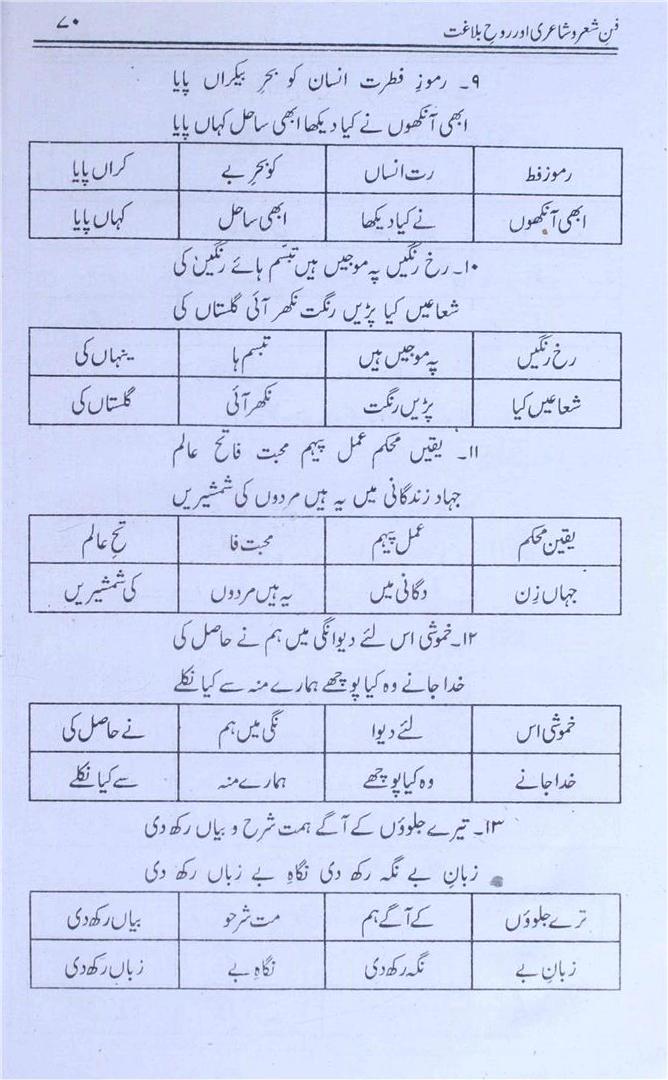 فنِ شعر و شاعری اور روحِ بلاغت ۷۰
۹۔ رموزِ فطرت انسان کو بحرِ بیکراں پایا
ابھی آنکھوں نے کیا دیکھا ابھی ساحل کہاں پایا
رموز فط رت انساں کو بحرِ بے کراں پایا
ابھی آنکھوں نے کیا دیکھا ابھی ساحل کہاں پایا
۱۰۔ رخ رنگیں پہ موجیں ہیں تبسّم ہائے رنگیں کی
شعاعیں کیا پڑیں رنگت نکھر آئی گلستاں کی
رخ رنگیں پہ موجیں ہیں تبسم ہا ینہاں کی
شعاعیں کیا پڑیں رنگت نکھر آئی گلستاں کی
۱۱۔ یقیں محکم عمل پیہم محبت فاتح عالم
جہاد زندگانی میں یہ ہیں مردوں کی شمشیریں
یقین محکم عمل پیہم محبت فا تحِ عالم
جہاں زِن دگانی میں یہ ہیں مردوں کی شمشیریں
۱۲۔ خموشی اس لئے دیوانگی میں ہم نے حاصل کی
خدا جانے وہ کیا پوچھے ہمارے منہ سے کیا نکلے
خموشی اس لئے دیوا نگی میں ہم نے حاصل کی
خدا جانے وہ کیا پوچھے ہمارے منہ سے کیا نکلے
۱۳۔ تیرے جلوؤں کے آگے ہمت شرح و بیاں رکھ دی
زبانِ بے نگہ رکھ دی نگاہِ بے زباں رکھ دی
ترے جلوؤں کے آگے ہم مت شرحو بیاں رکھ دی
زبانِ بے نگہ رکھ دی نگاہِ بے زباں رکھ دی